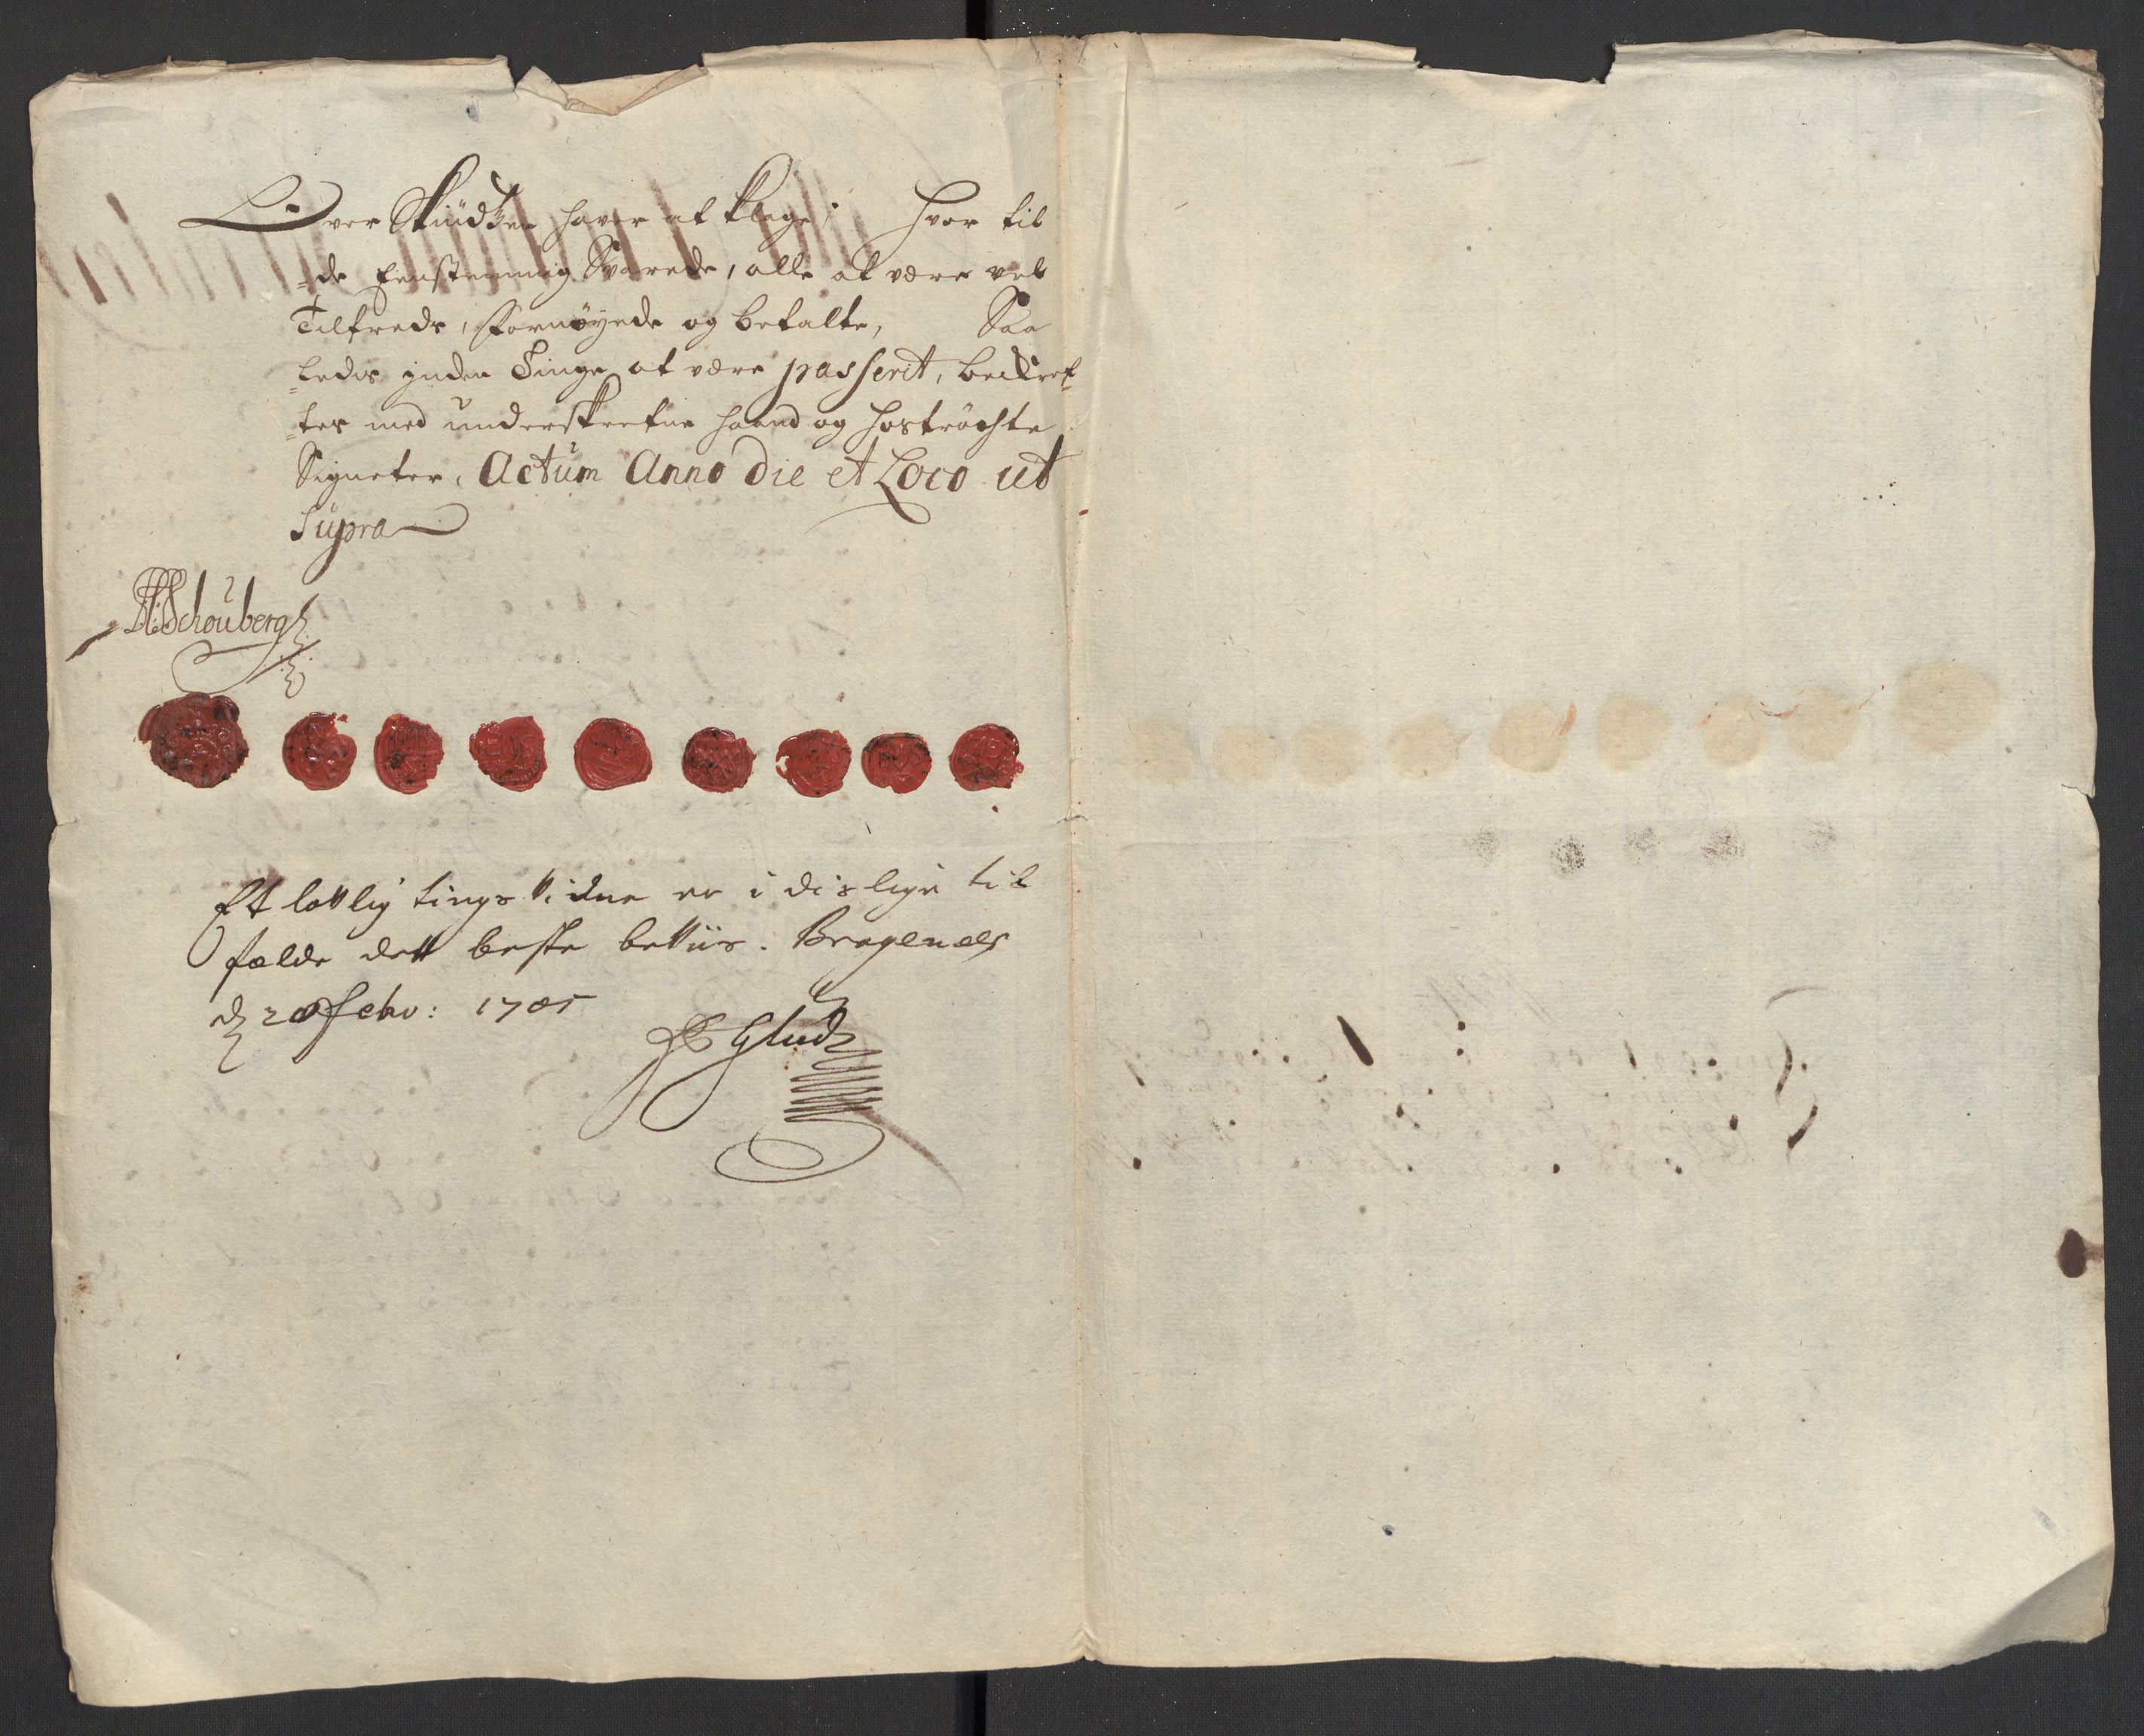 Over Skiüdzen hafver at klage; Hvor til
=de Eenstemmig Svarede, alle at være vel
Tilfreds, fornøyede og betalte, Saa
=ledis inden Tinge at være passerit, beckref=
=tes med underskrefne haand og hostrøchte
Signeter, Actum Anno die et Loco ut
Supra
Schouberg
Et lovlig tings vidne er i dislige til
fælde dett beste beviis. Bragenæs
d 20 Febr: 1705
Glud